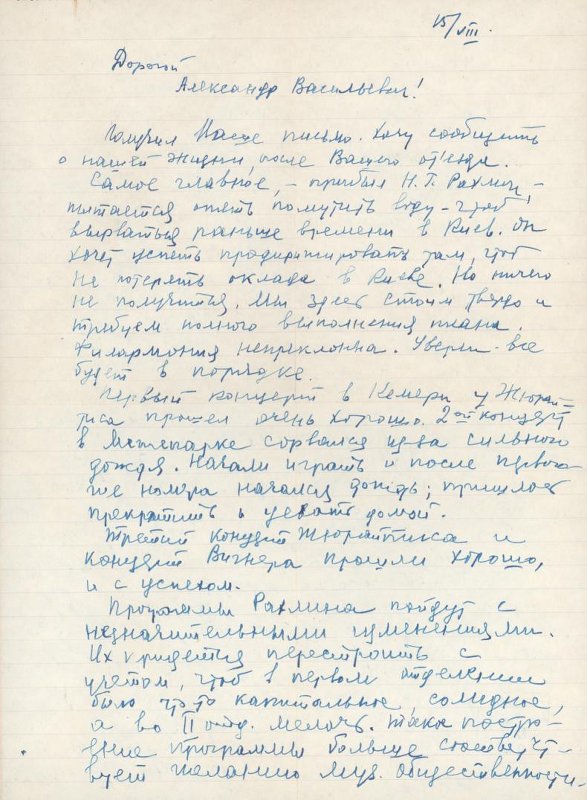 15/VIII.
Дорогой
Александр Васильевич!
Получил Ваше письмо. Хочу сообщить
о нашей жизни после Вашего от'езда.
Самое главное, – прибыл Н. Г. Рахлин,
пытается опять помутить воду – чтоб
вырваться раньше времени в Киев. Он
хочет успеть продирижировать там, чтоб
не потерять оклада в Киеве. Но ничего
не получится. Мы здесь стоим твердо и
требуем полного выполнения плана.
Филармония непреклонна. Уверен – все
будет в порядке.
Первый концерт в Кемери у Жюрай-
тиса прошел очень хорошо. 2-ой концерт
в Межепарке сорвался из-за сильного
дождя. Начали играть и после первого
же номера начался дождь; пришлось
прекратить и уехать домой.
Третий концерт Жюрайтиса и
концерт Вигнера прошли хорошо,
и с успехом.
Программы Рахлина пойдут с
незначительными изменениями.
Их придется перестроить с
учетом, чтоб в первом отделении
было что-то капитальное, солидное,
а во II отд. мелочь. Такое постро-
ение программы больше соответст-
вует желанию муз. общественности.